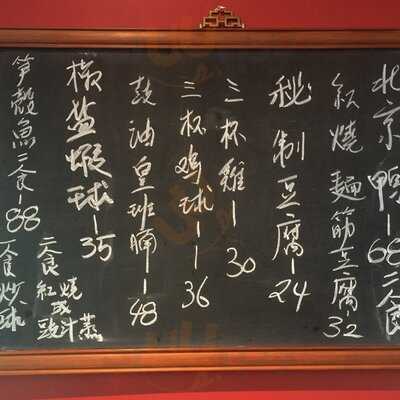 北京鸭-68二食
紅燒麵筋豆腐-32
秘制豆腐-24
三杯雞-30
三杯鸡球--36
豉油皇班腩-48
椒盐蝦球-35
笋殼魚二食-88
二食
紅燒
或
豉汁蒸
一食炒球